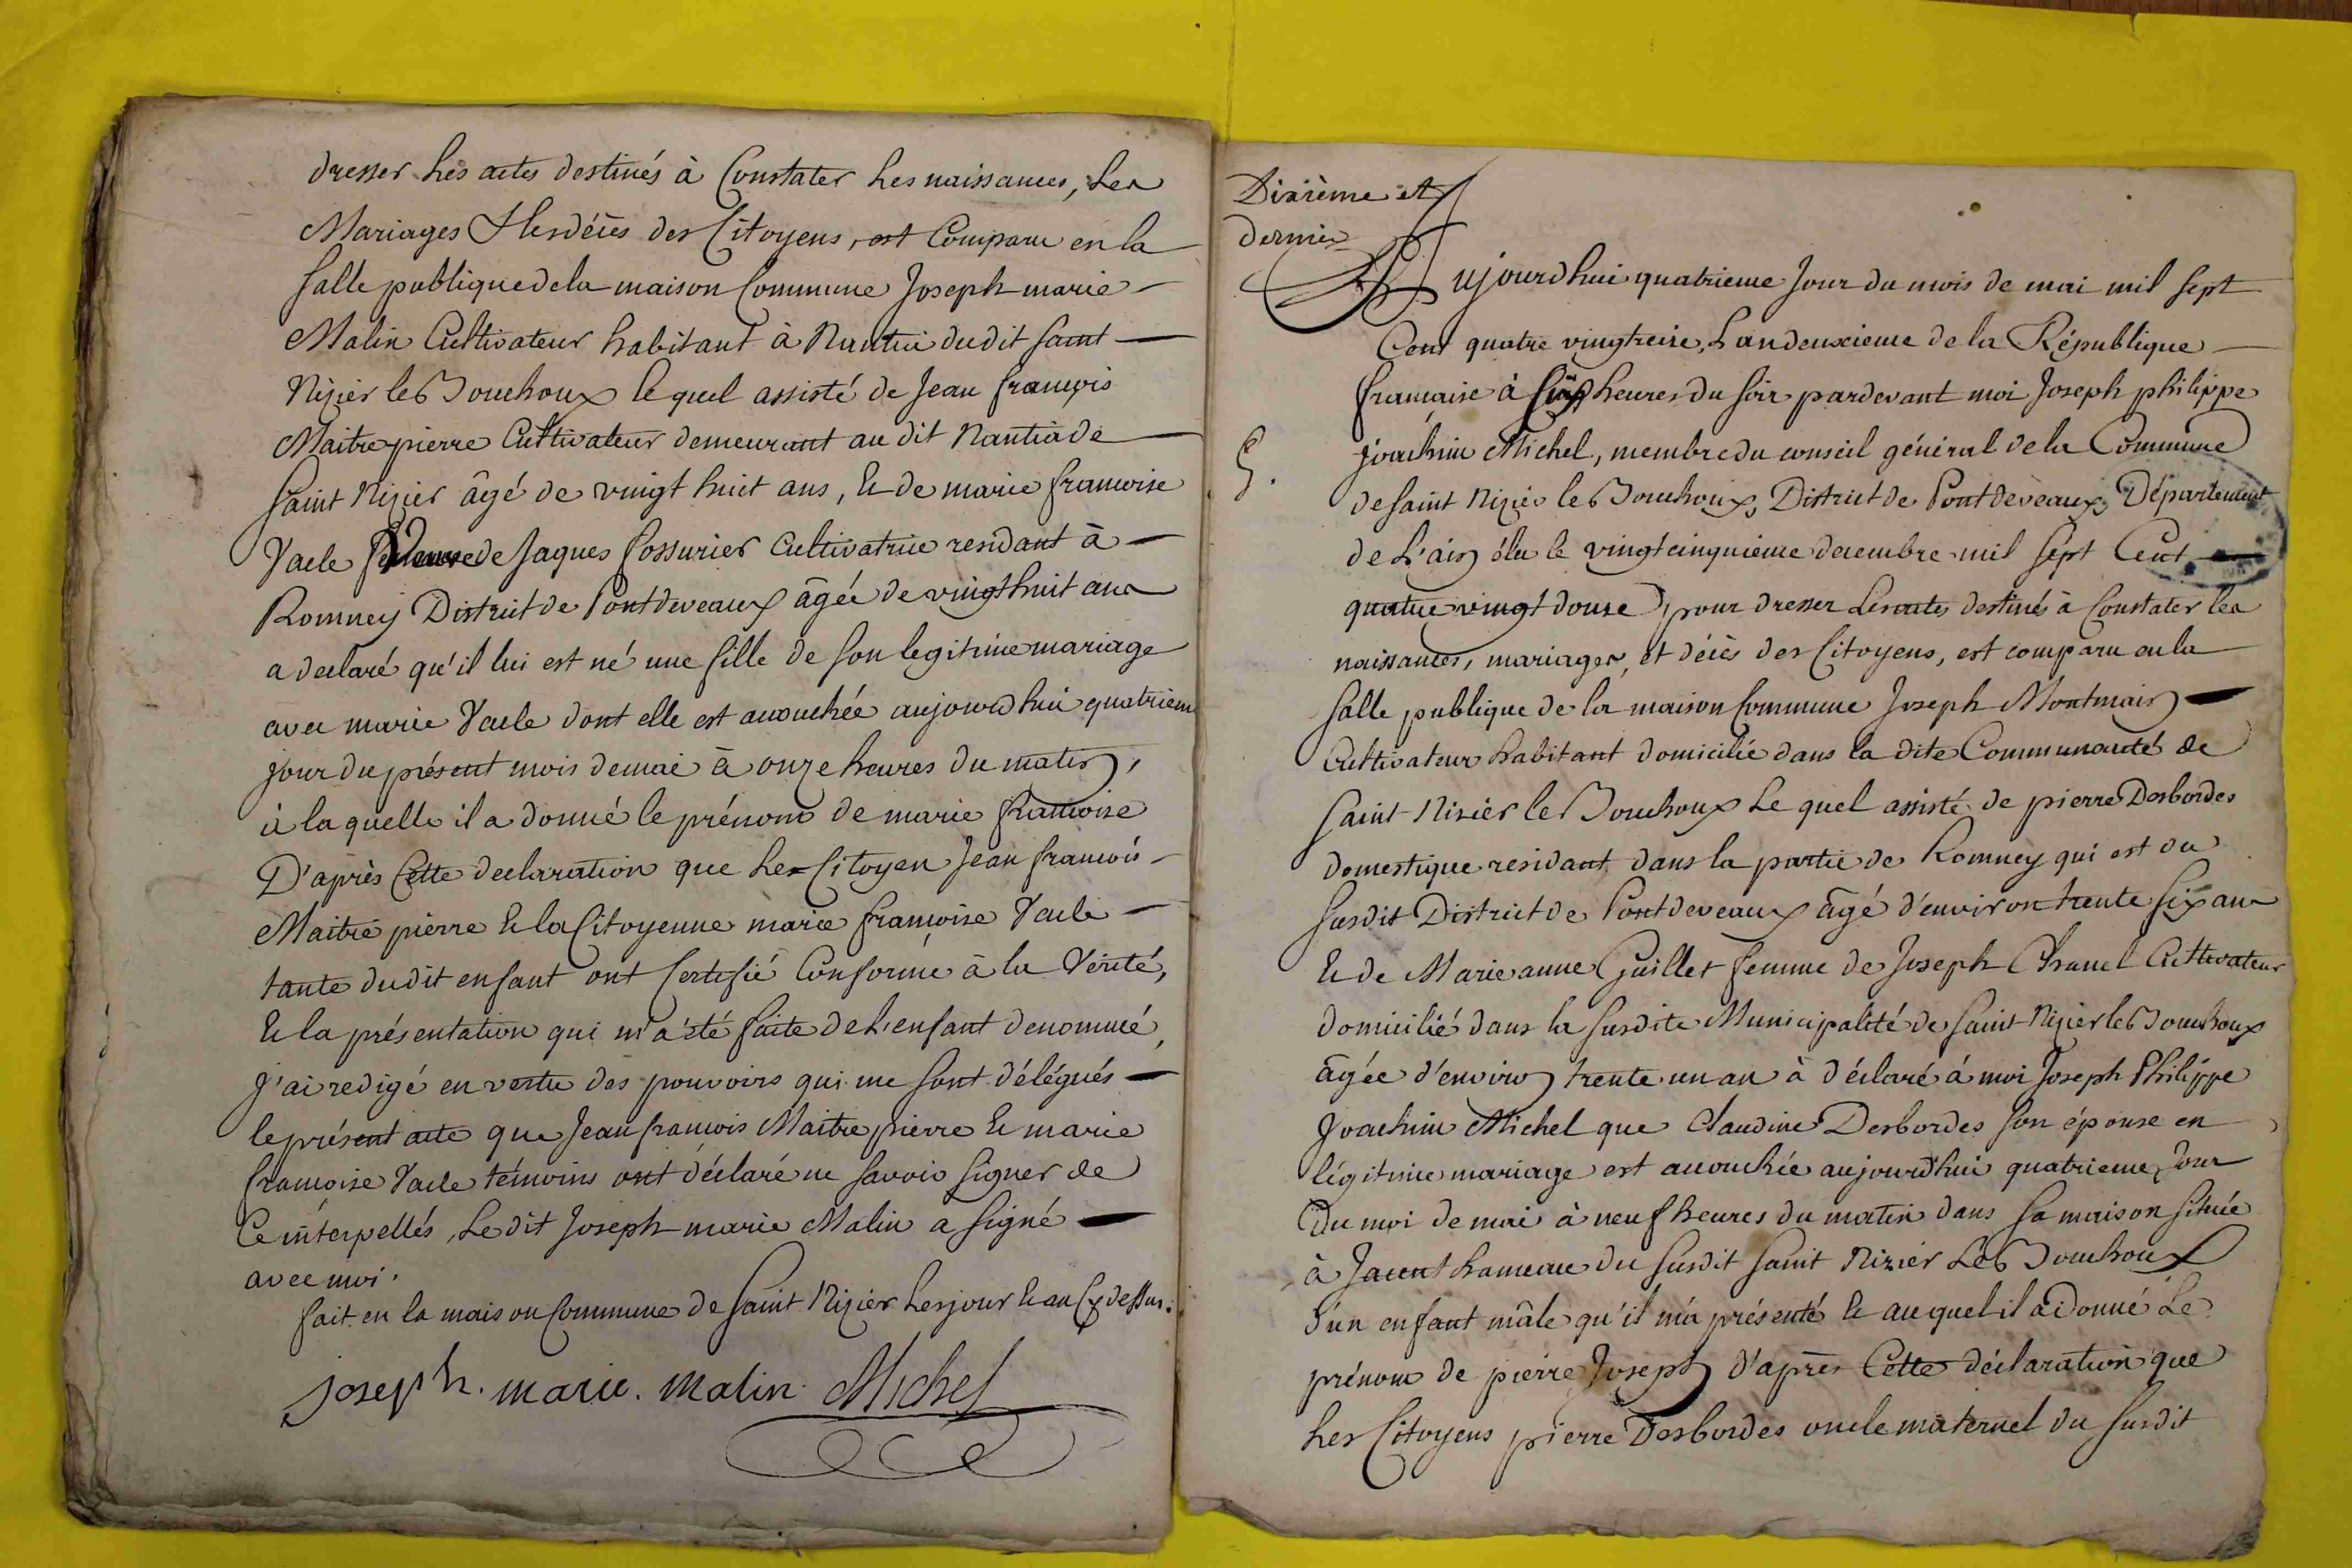 dresser les actes destinés à Constater les naissances, les
Mariages & les décès des Citoyens, est Comparu en la
salle publique de la maison Commune Joseph marie
Malin Cultivateur habitant à Nantia dudit saint
Nizier le Bouchoux lequel assisté de Jean françois
Maitrepierre Cultivateur demeurant au dit Nantia de
saint Nizier âgé de vingt huit ans, & de marie francoise
Vacle veuve de Jaques fossurier Cultivatrice residant à
Romney District de Pontdeveaux âgée de vingt huit ans
a declaré qu'il lui est né une fille de son legitime mariage
avec marie Vacle dont elle est accouchée aujourdhui quatrieme
jour du présent mois de mai à onze heures du matin,
à laquelle il a donné le prénom de marie francoise
D'après Cette declaration que les Citoyen Jean francois
Maitre pierre & la Citoyenne marie francoise Vacle
tante dudit enfant ont Certifié Conforme à la Vérité,
& la présentation qui m'a été faite de l'enfant denommé,
j'ai redigé en vertu des pouvoirs qui me sont délégués
le présent acte que Jean francois Maitre pierre & marie
francoise Vacle témoins ont déclaré ne savoir signer de
Ce interpellés, Le dit Joseph marie Malin a signé
avec moi.
fait en la maison Commune de saint Nizier les jour & an Cy dessus.
joseph. marie. malin Michel
Dixième et
dernier
Aujourdhui quatrieme jour du mois de mai mil sept
Cent quatre vingt treize, L'an deuxieme de la République
française à six heures du soir pardevant moi Joseph philippe
joachim Michel, membre du conseil général de la Commune
de saint Nizier le Bouchoux, District de Pontdeveaux, Département
de L'ain élu le vingt cinquieme decembre mil sept Cent
quatre vingt douze, pour dresser les actes destinés à Constater les
naissances, mariages, et décès des Citoyens, est comparu en la
salle publique de la maison Commune Joseph Montmain
Cultivateur habitant domicilié dans la dite Communauté de
saint Nizier le Bouchoux Le quel assisté de pierre Desbordes
domestique residant dans la partie de Romney qui est du
susdit District de Pontdeveaux âgé d'environ trente six ans
& de Marie anne Guillet femme de Joseph Chanel Cultivateur
domicilié dans la susdite Municipalité de saint Nizier le Bouchoux
âgée d'environ trente un an à déclaré à moi Joseph Philippe
Joachim Michel que Claudine Desbordes son épouse en
légitime mariage est accouchée aujourd'hui quatrieme Jour
Du moi de mai à neuf heures du matin dans sa maison située
à Jacent hameau du susdit saint Nizier Le Bouchoux
D'un enfant mâle qu'il m'a présenté & auquel il a Donné Le
prénom de pierre Joseph D'après Cette déclaration que
Les Citoyens pierre Desbordes oncle maternel du susdit